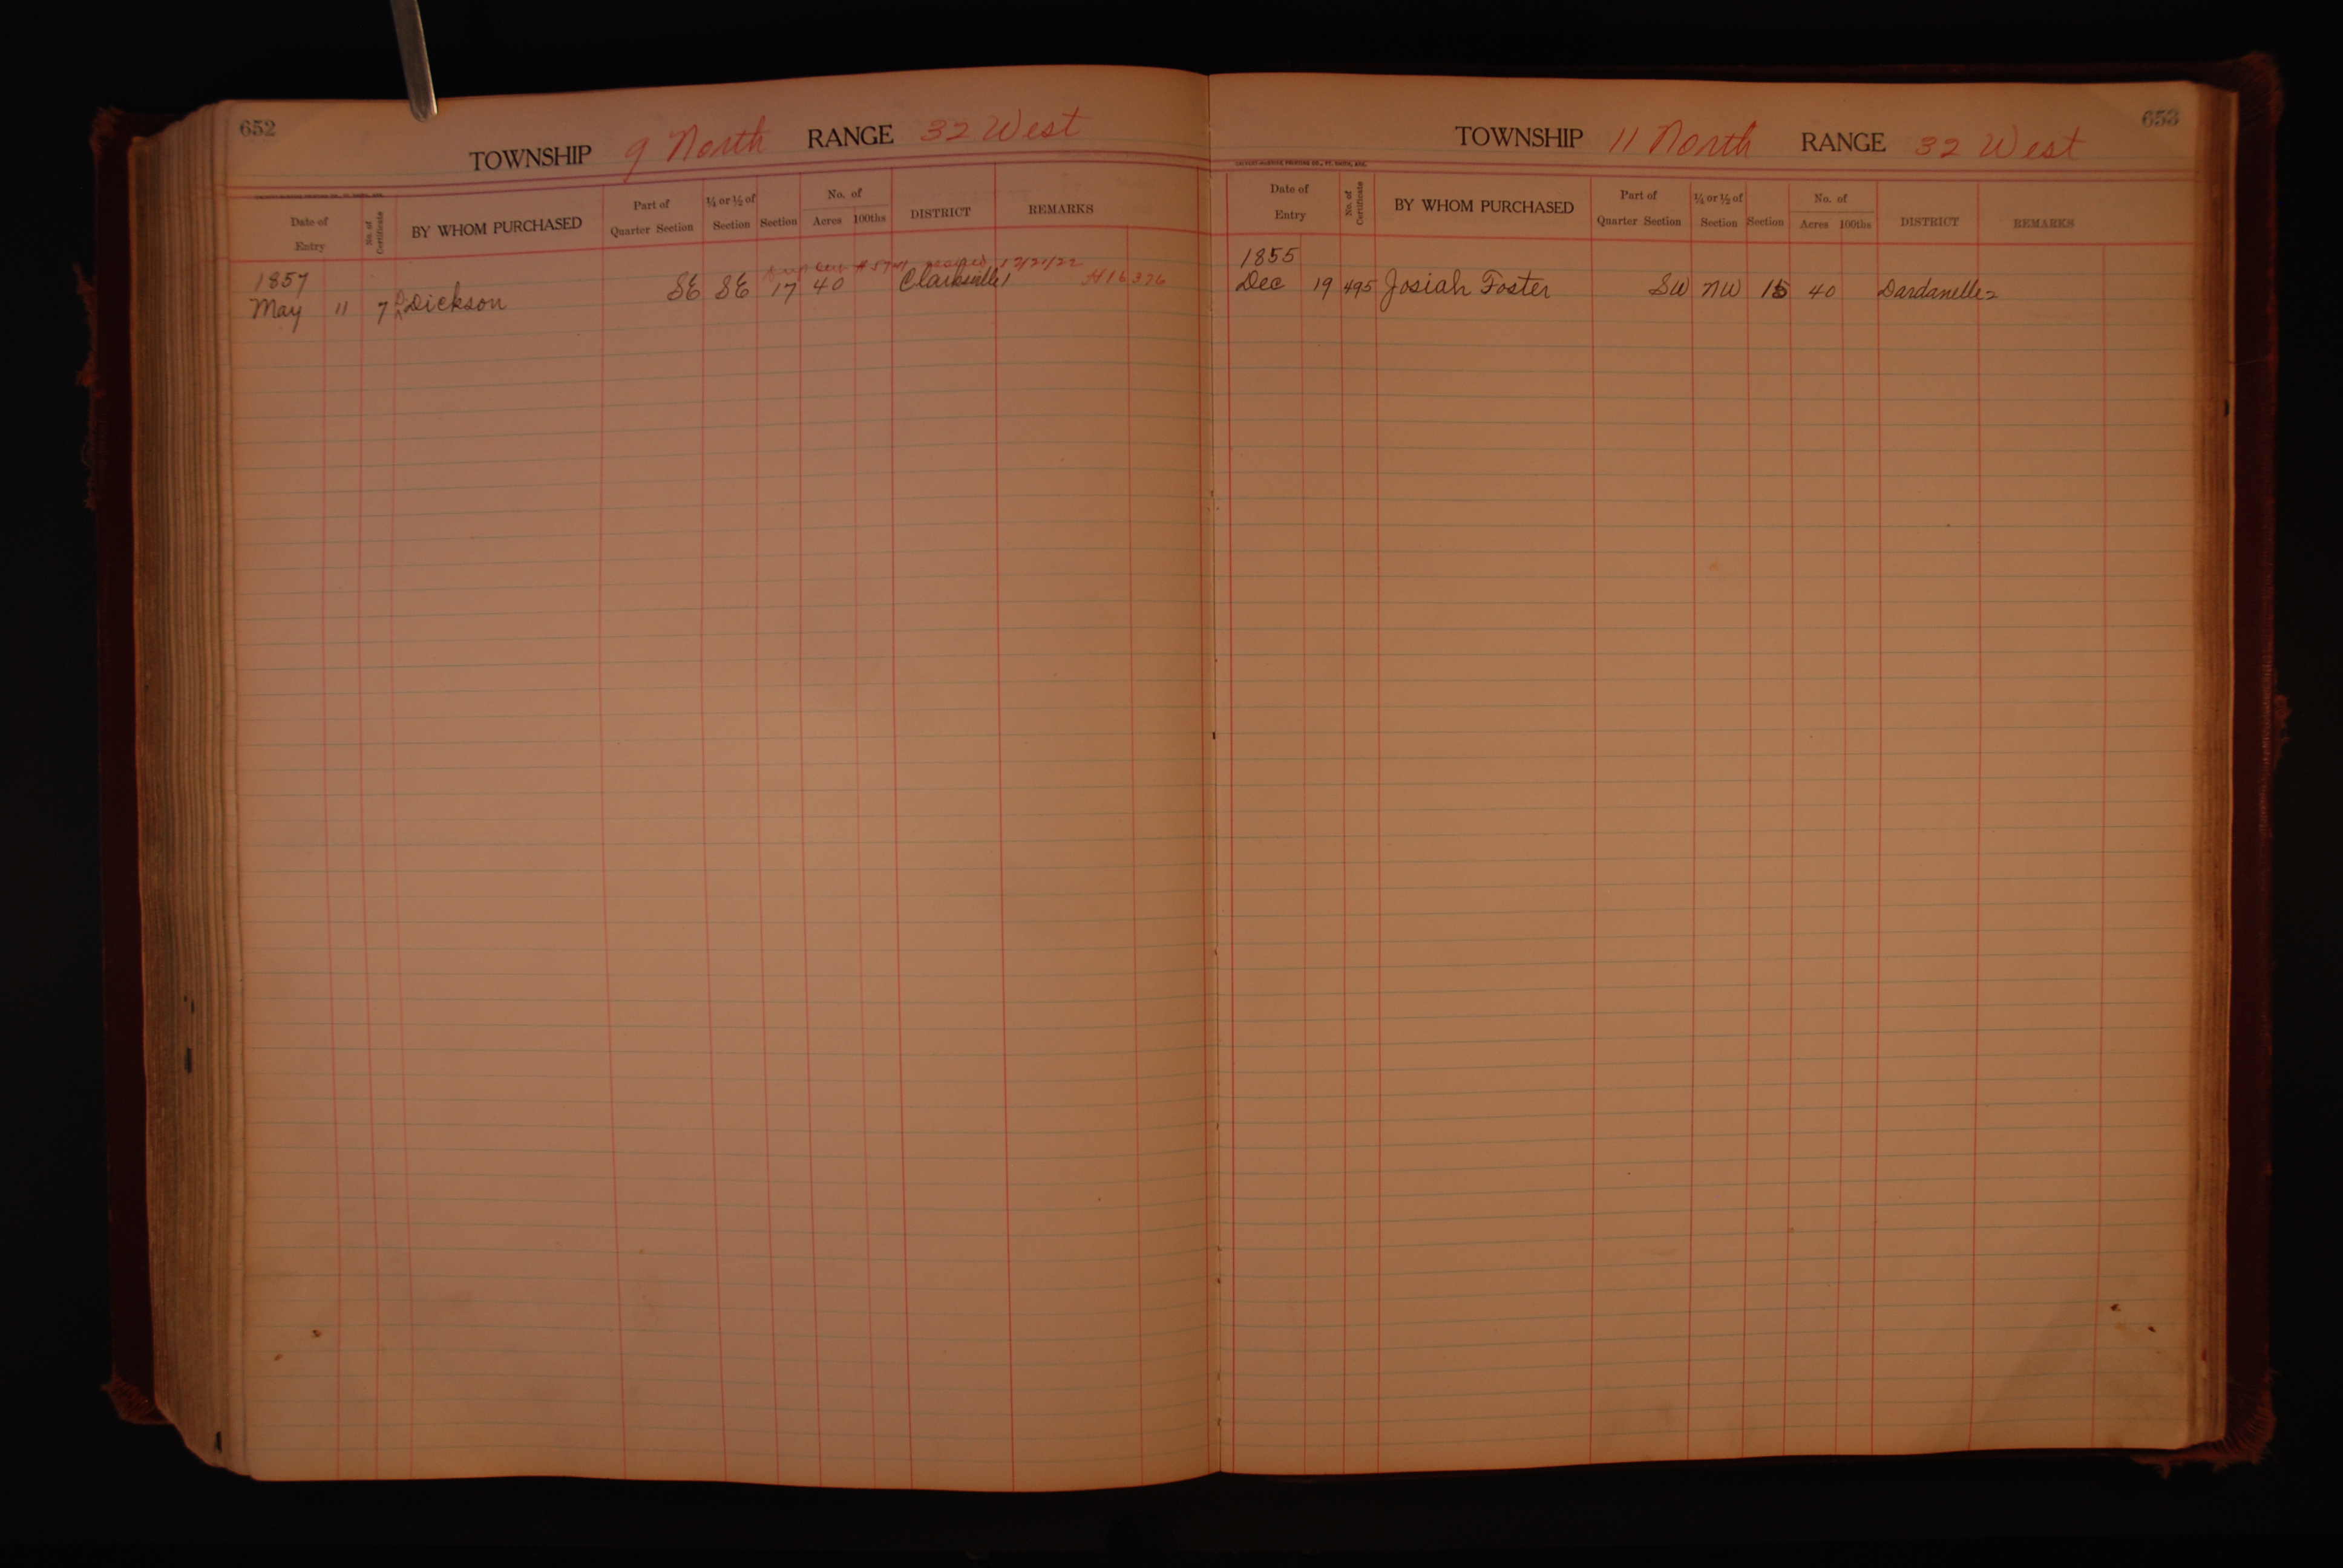 652
TOWNSHIP 9 North RANGE 32 West
Date of Entry No. of Certificate BY WHOM PURCHASED Part of Quarter Section ¼ or ½ of Section Section No. of Acres 100ths DISTRICT REMARKS
12/21/22
1857
May 11 7 Dickson SE SE 17 40 Clarksville #16376
653
TOWNSHIP 11 North RANGE 32 West
Date of Entry No. of Certificate BY WHOM PURCHASED Part of Quarter Section ¼ or ½ of Section Section No. of Acres 100ths DISTRICT REMARKS
1855
Dec 19 495 Josiah Foster SW NW 15 40 Dardanelle 2